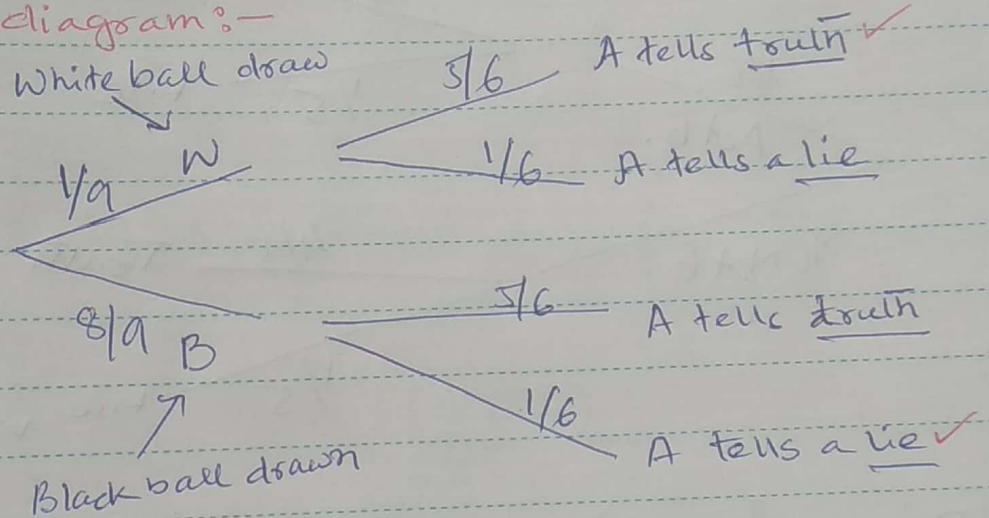 diagram:-
White ball draw
5/6 A tells truth ✓
1/9 W
1/6 A tells a lie
8/9 B
5/6 A tells truth
1/6 A tells a lie ✓
Black ball drawn